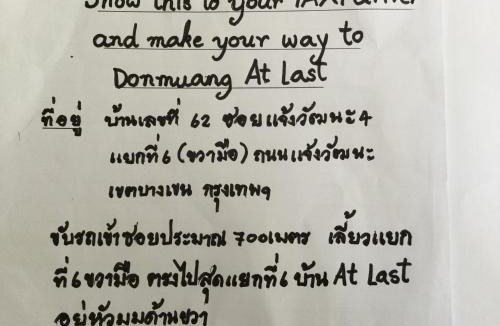 Show this to your TAXI driver
and make your way to
Donmuang At Last
ที่อยู่ บ้านเลขที่ 62 ซอยแจ้งวัฒนะ4
แยกที่6 (ขวามือ) ถนนแจ้งวัฒนะ
เขตบางเขน กรุงเทพฯ
ขับรถเข้าซอยประมาณ 700เมตร เลี้ยวแยก
ที่6ขวามือ ตรงไปสุดแยกที่6 บ้าน At Last
อยู่หัวมุมด้านขวา